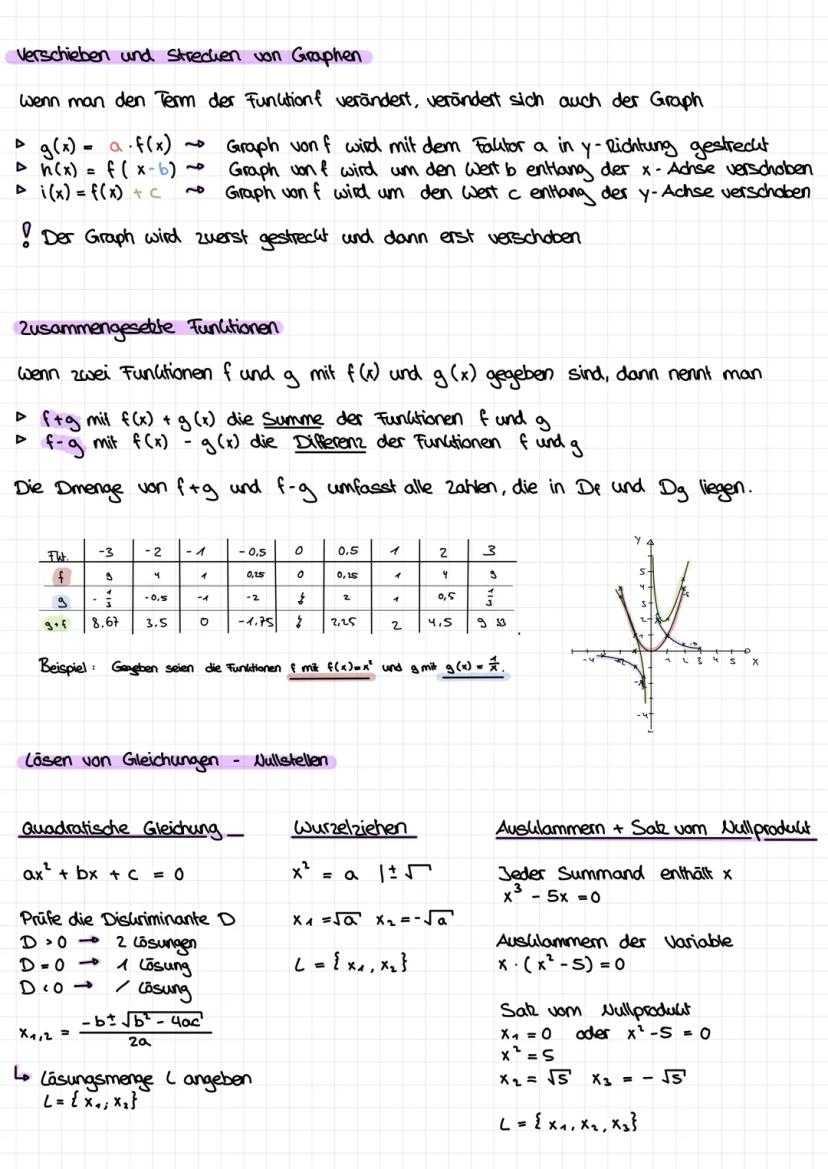 Verschieben und Strecken von Graphen
Wenn man den Term der Funktion f verändert, verändert sich auch der Graph
▷ g(x) = a · f(x) ⇝ Graph von f wird mit dem Faktor a in y-Richtung gestreckt
▷ h(x) = f(x-b) ⇝ Graph von f wird um den Wert b entlang der x-Achse verschoben
▷ i(x) = f(x) + c ⇝ Graph von f wird um den Wert c entlang der y-Achse verschoben
! Der Graph wird zuerst gestreckt und dann erst verschoben
Zusammengesetzte Funktionen
Wenn zwei Funktionen f und g mit f(x) und g(x) gegeben sind, dann nennt man
▷ f+g mit f(x) + g(x) die Summe der Funktionen f und g
▷ f-g mit f(x) - g(x) die Differenz der Funktionen f und g
Die Dmenge von f+g und f-g umfasst alle Zahlen, die in Df und Dg liegen.
Fkt. -3 -2 -1 -0,5 0 0,5 1 2 3
f 9 4 1 0,25 0 0,25 1 4 9
g -1/3 -0,5 -1 -2 ∤ 2 1 0,5 1/3
g+f 8,67 3,5 0 -1,75 ∤ 2,25 2 4,5 9,33
Beispiel: Gegeben seien die Funktionen f mit f(x)=x² und g mit g(x) = 1/x.
y
5
4
3
2
1
-4
1 2 3 4 5 x
-4
Lösen von Gleichungen - Nullstellen
Quadratische Gleichung
ax² + bx + c = 0
Prüfe die Diskriminante D
D > 0 → 2 Lösungen
D = 0 → 1 Lösung
D < 0 → / Lösung
x1,2 = (-b ± √(b² - 4ac)) / 2a
↳ Lösungsmenge L angeben
L = {x1; x2}
Wurzelziehen
x² = a |±√
x1 = √a x2 = -√a
L = {x1, x2}
Ausklammern + Satz vom Nullprodukt
Jeder Summand enthält x
x³ - 5x = 0
Ausklammern der Variable
x · (x² - 5) = 0
Satz vom Nullprodukt
x1 = 0 oder x² - 5 = 0
x² = 5
x2 = √5 x3 = -√5
L = {x1, x2, x3}